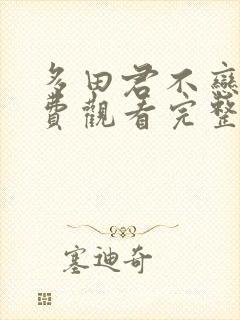 多田君不戀
費觀看完整
塞迪奇